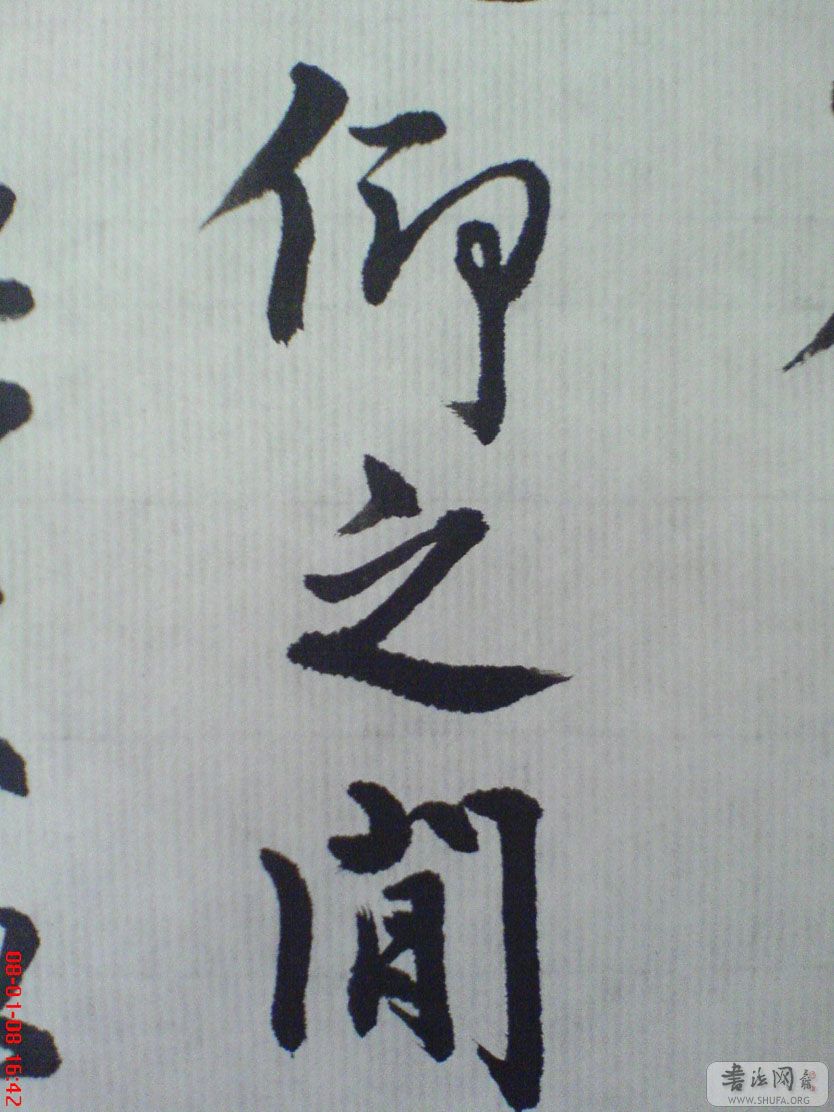 仰之閒
08-01-08 16:42
书法网
WWW.SHUFA.ORG